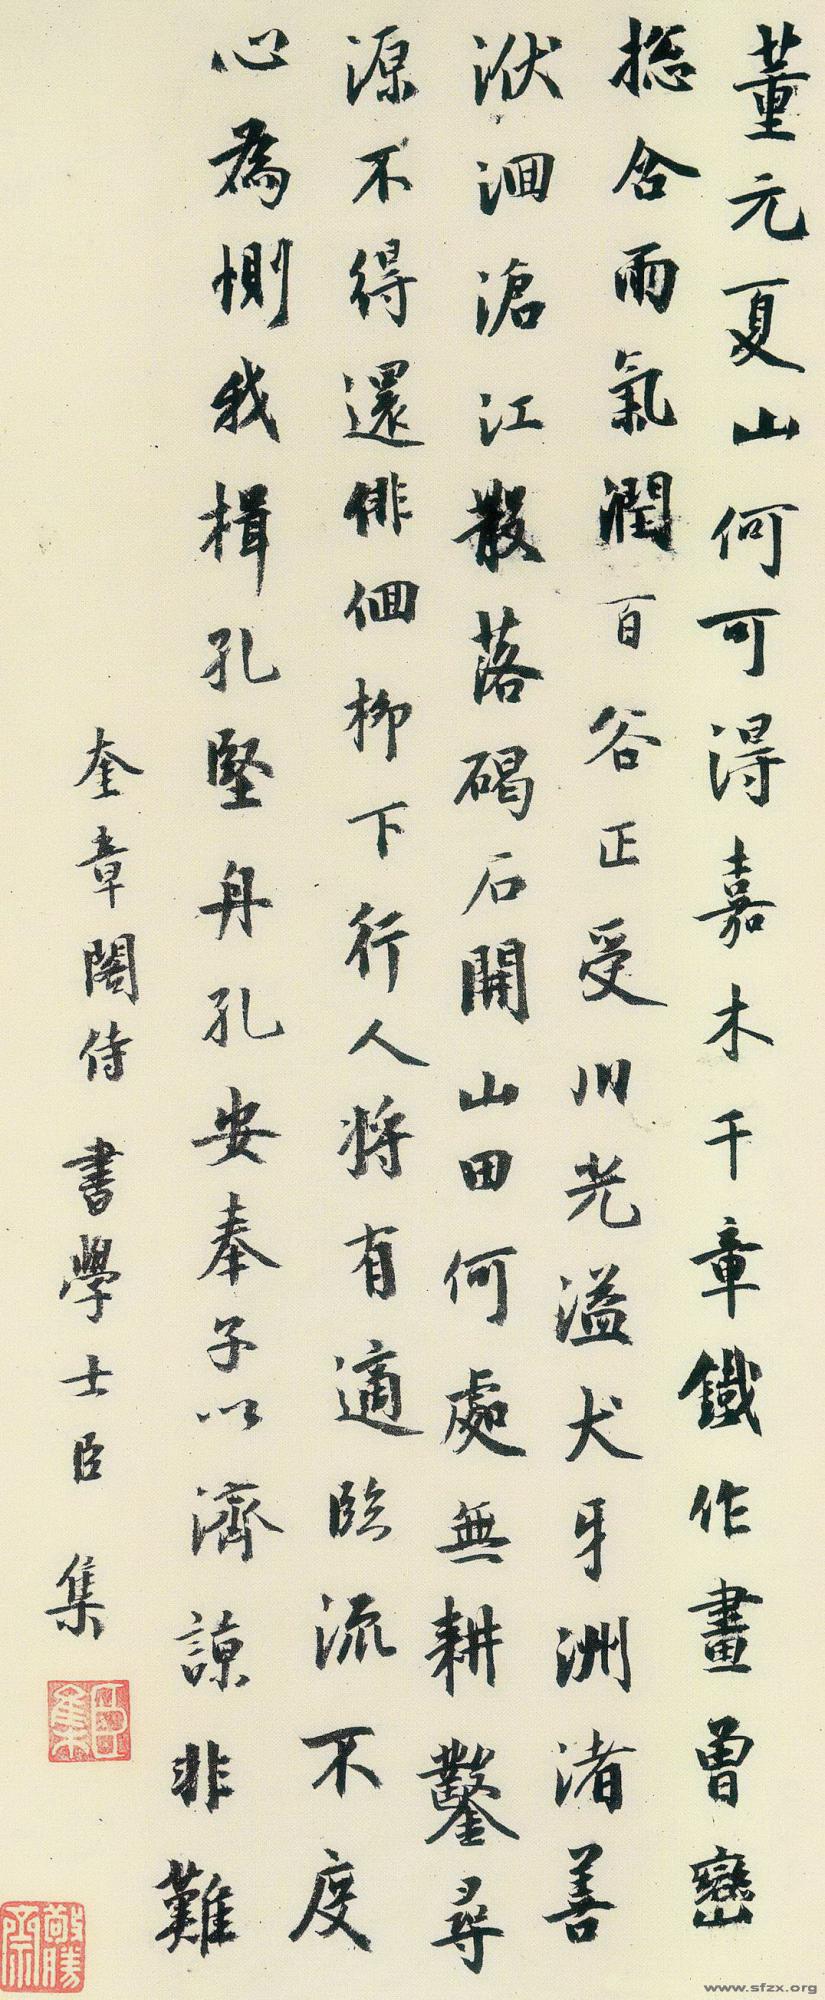 董元夏山何可得嘉木千章鐵作畫曾巒
揔含雨氣潤百谷正受川光溢犬牙洲渚善
洑洄滄江散落碣石開山田何處無耕鑿尋
源不得還俳佪柳下行人將有適臨流不度
心為惻我楫孔堅舟孔安奉子以濟諒非難
奎章閣侍書學士臣集
臣集
www.sfzx.org